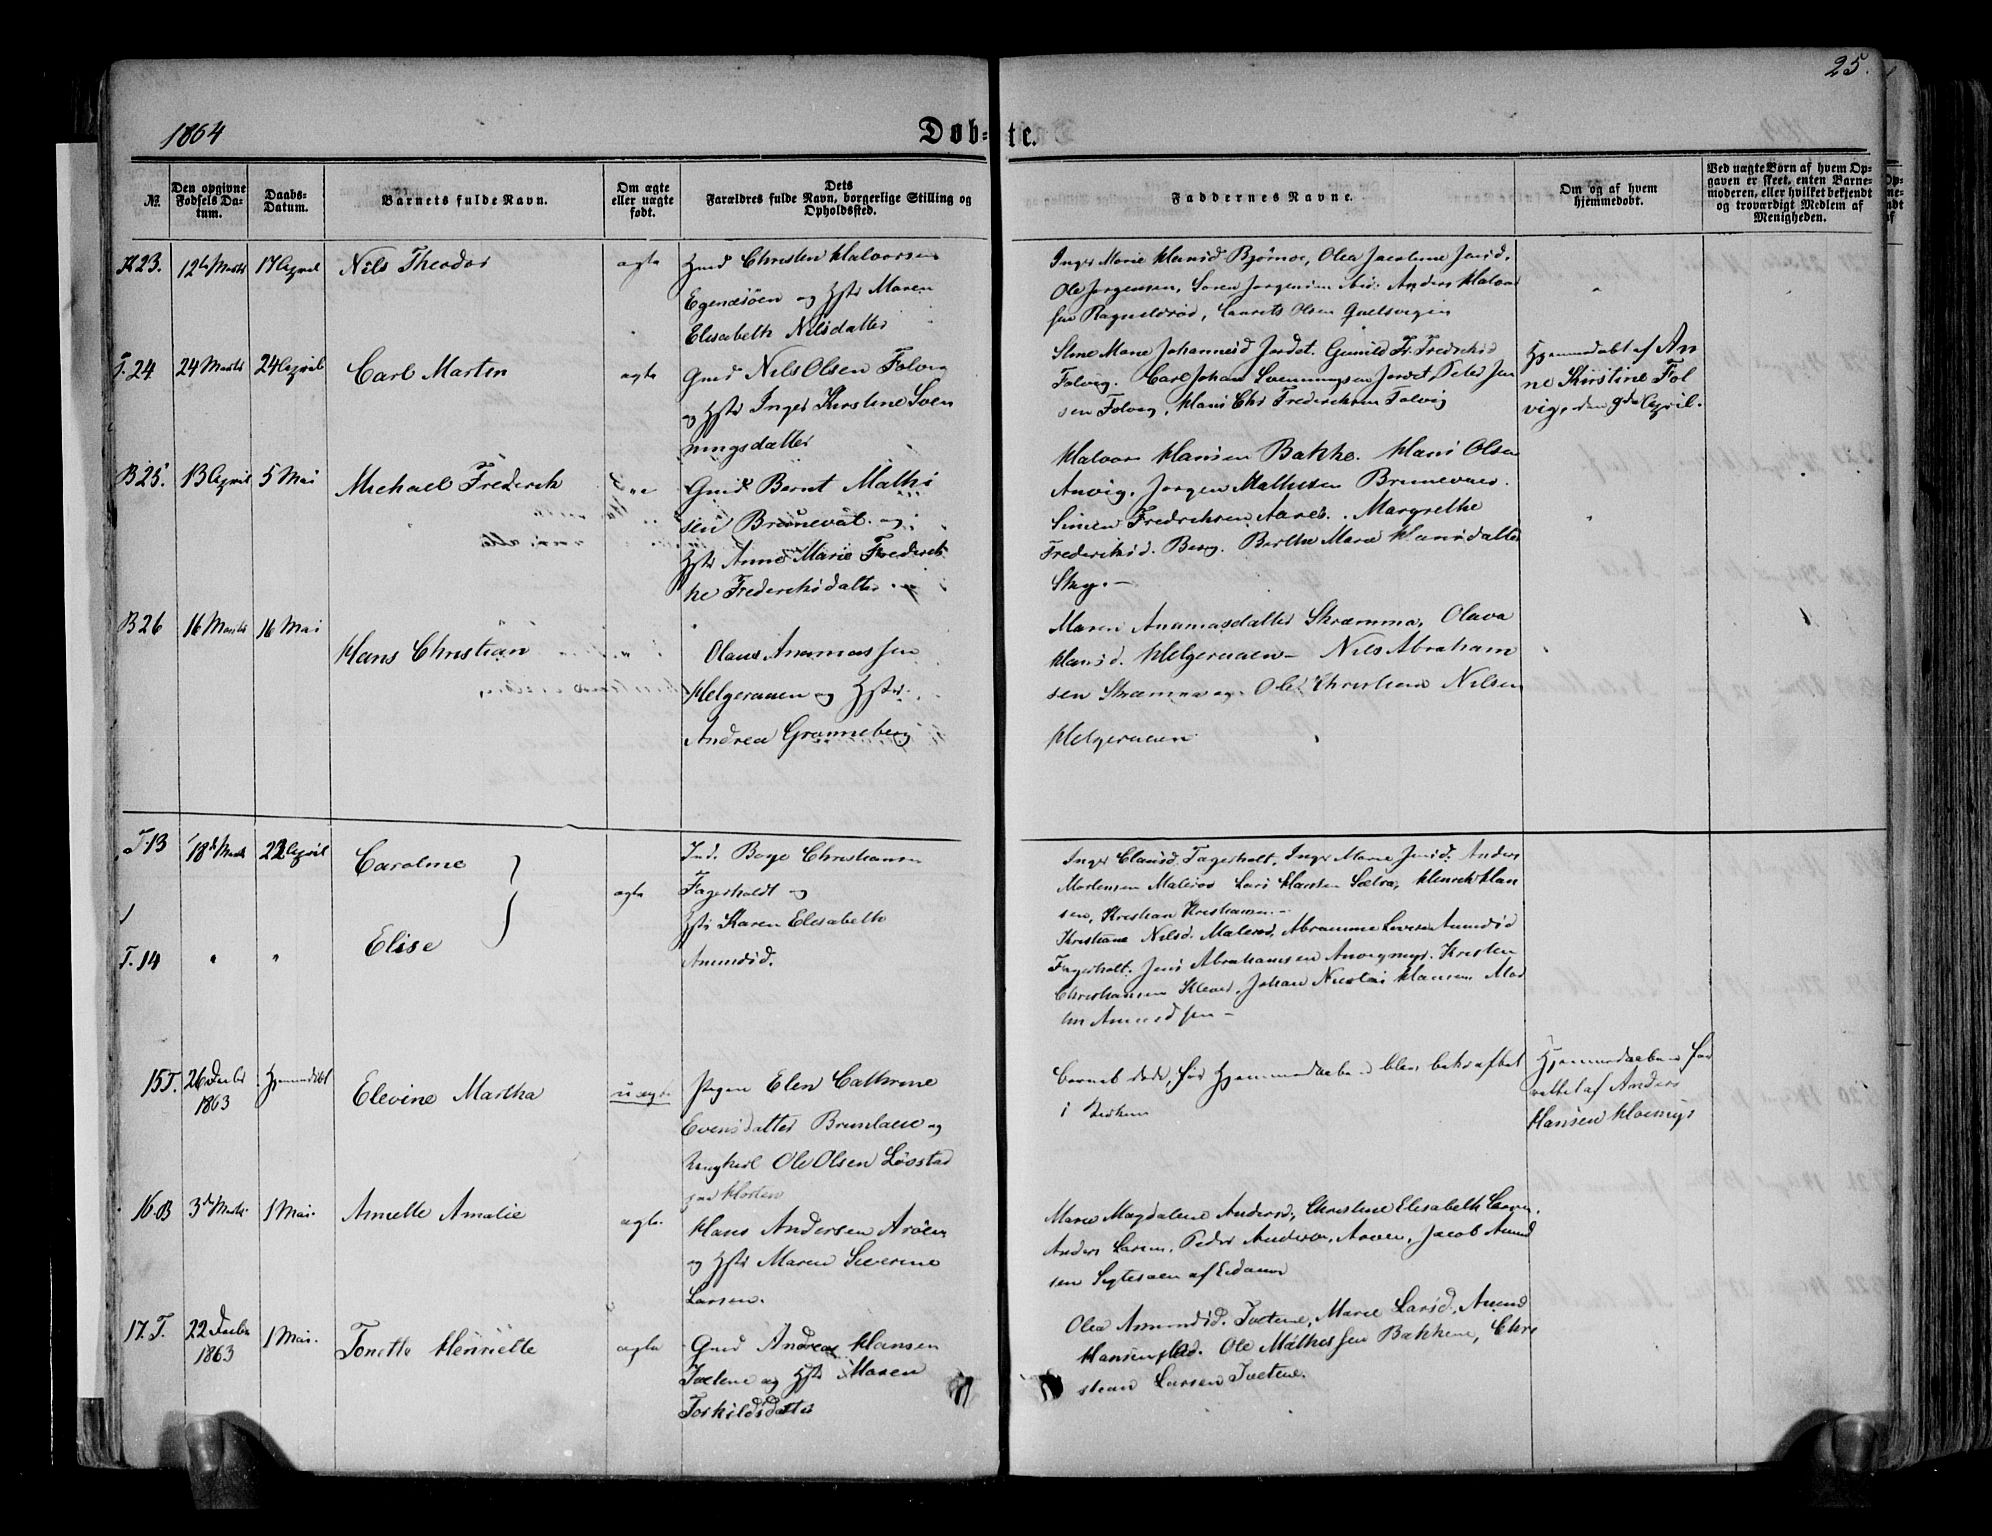 25.
1864
Døb- te.
№.
Den opgivne Fødsels Da-
tum.
Daabs-
Datum.
Barnets fulde Navn.
Om ægte eller uægte født.
Dets
Forældres fulde Navn, borgerlige Stilling og
Opholdssted.
Faddernes Navne.
Om og af hvem
hjemmedøbt.
Ved uægte Børn af hvem Op-
gaven er skeet, enten Barne-
moderen, eller hvilket bekjendt
og troværdigt Medlem af
Menigheden.
23. 12te Marts 17 April Nils Theodor ægte
Gmd Christen Halvorsen
Egenæsöen og Hstr Maren
Elisabeth Nilsdatter
Inger Marie Hansd Bjørnøe, Olea Jacobine Jensd.
Ole Jørgensen, Søren Jørgensen Anders Halvor
sen Ragneldrød, Laurits Olsen
T. 24 24 Marts 24 April Carl Martin ægte
Gmd Nils Olsen Folvig
og Hstr Inger Kirstine Sven
ningsdatter
Stine Marie Johannesd Jordet. Gunild Fr. Fredriksd
Folvig. Carl Johan Svenningsen Jordet, Peder Jen
sen Folvig, Hans Chr Frederiksen Folvig
Hjemmedøbt af An
ne Kirstine Fol
vig, den 9de April.
B 25. 13 April 5 Mai Michael Frederik
Gmd Bernt Mathi
sen Bruneval og
Hstr Anne Marie Frederik
ke Frederiksdatter
Halvor Hansen Bakke. Hans Olsen
Anvig. Jørgen Mathisen Brunevald.
Simen Fredriksen Aarøe. Margrethe
Frederiksd. Berg. Berthe Marie Hansdatter
Sky. –
B 26 16 Marts 16 Mai Hans Christian
Olaus Anannassen
Helgeraaen og Hstr
Andrea Granneberg
Maren Ananiasdatter Skræmma, Olava
Hansd. Helgeraaen – Nils Abraham
sen Skræmma og Ole Christian Nilsen
Helgeraaen
T. 13 18de Marts 22 April Caroline
ægte
Ind. Boye Christiansen
Fagerholdt og
Hstr Karen Elisabeth
Amundsd.
Inger Clausd. Fagerholt. Inger Marie Jensd. Anders
Mortensen Malerød Lars Karsten Sætra, Henrik Han
sen, Kristian Kristiansen –
T. 14 " " Elise
Kristiane Nilsd. Malerød, Abramine Severine Amundsd
Fagerholt. Jens Abrahamsen Anvigmyr. Kristen
Christiansen Klever, Johan Nicolai Hansen
tin Amundsen –
15 T. 26 Decbr 1863 Hjemmedøbt Elevine Martha uægte
Pigen Elen Cathrine
Evensdatter Brunlane og
Ungkarl Ole Olsen Løvstad
paa Horten
Barnet døde, før Hjemmedaaben blev bekræftet
i Kirken
Hjemmedaaben for
rettet af Anders
Hansen
16. B 3die Marts. 1 Mai. Annette Amalie ægte.
Hans Andersen Arøen
og Hstr Maren Severine
Larsen.
Marie Magdalene Andersd., Christine Elisabeth Larsen,
Anders Larsen, Peder Andersen, Arøen, Jacob Amund
sen
17. T. 22 Decbr 1863 1 Mai. Tonette Henriette ægte
Gmd Andreas Hansen
Tvetene og Hstr Maren
Torkildsdatter
Olea Amundsd. Tvetene, Marie Larsd. Amund
Hansen Ole Mathissen Bakkene, Chri
stian Larsen Tvetene.